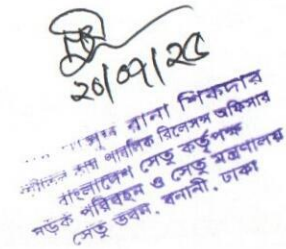 ২০/০৭/২৫
রানা শিকদার
পাবলিক রিলেসন্স অফিসার
বাংলাদেশ সেতু কর্তৃপক্ষ
সড়ক পরিবহন ও সেতু মন্ত্রণালয়
সেতু ভবন, বনানী, ঢাকা